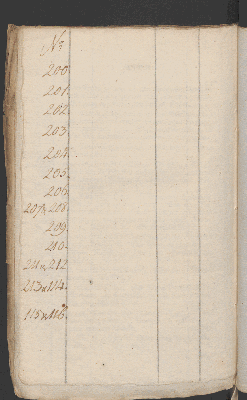 N3
200
201
202
203
204
205
206
207 n 208
209
210
211 n 212
213 n 114
115 n 116